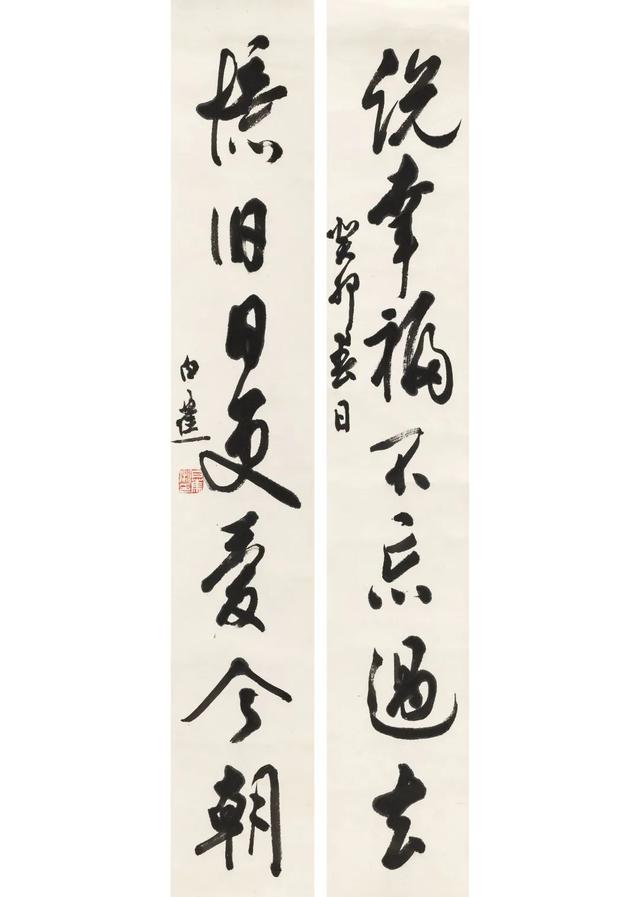 说幸福不忘过去
癸卯春日
忆旧日更爱今朝
白蕉